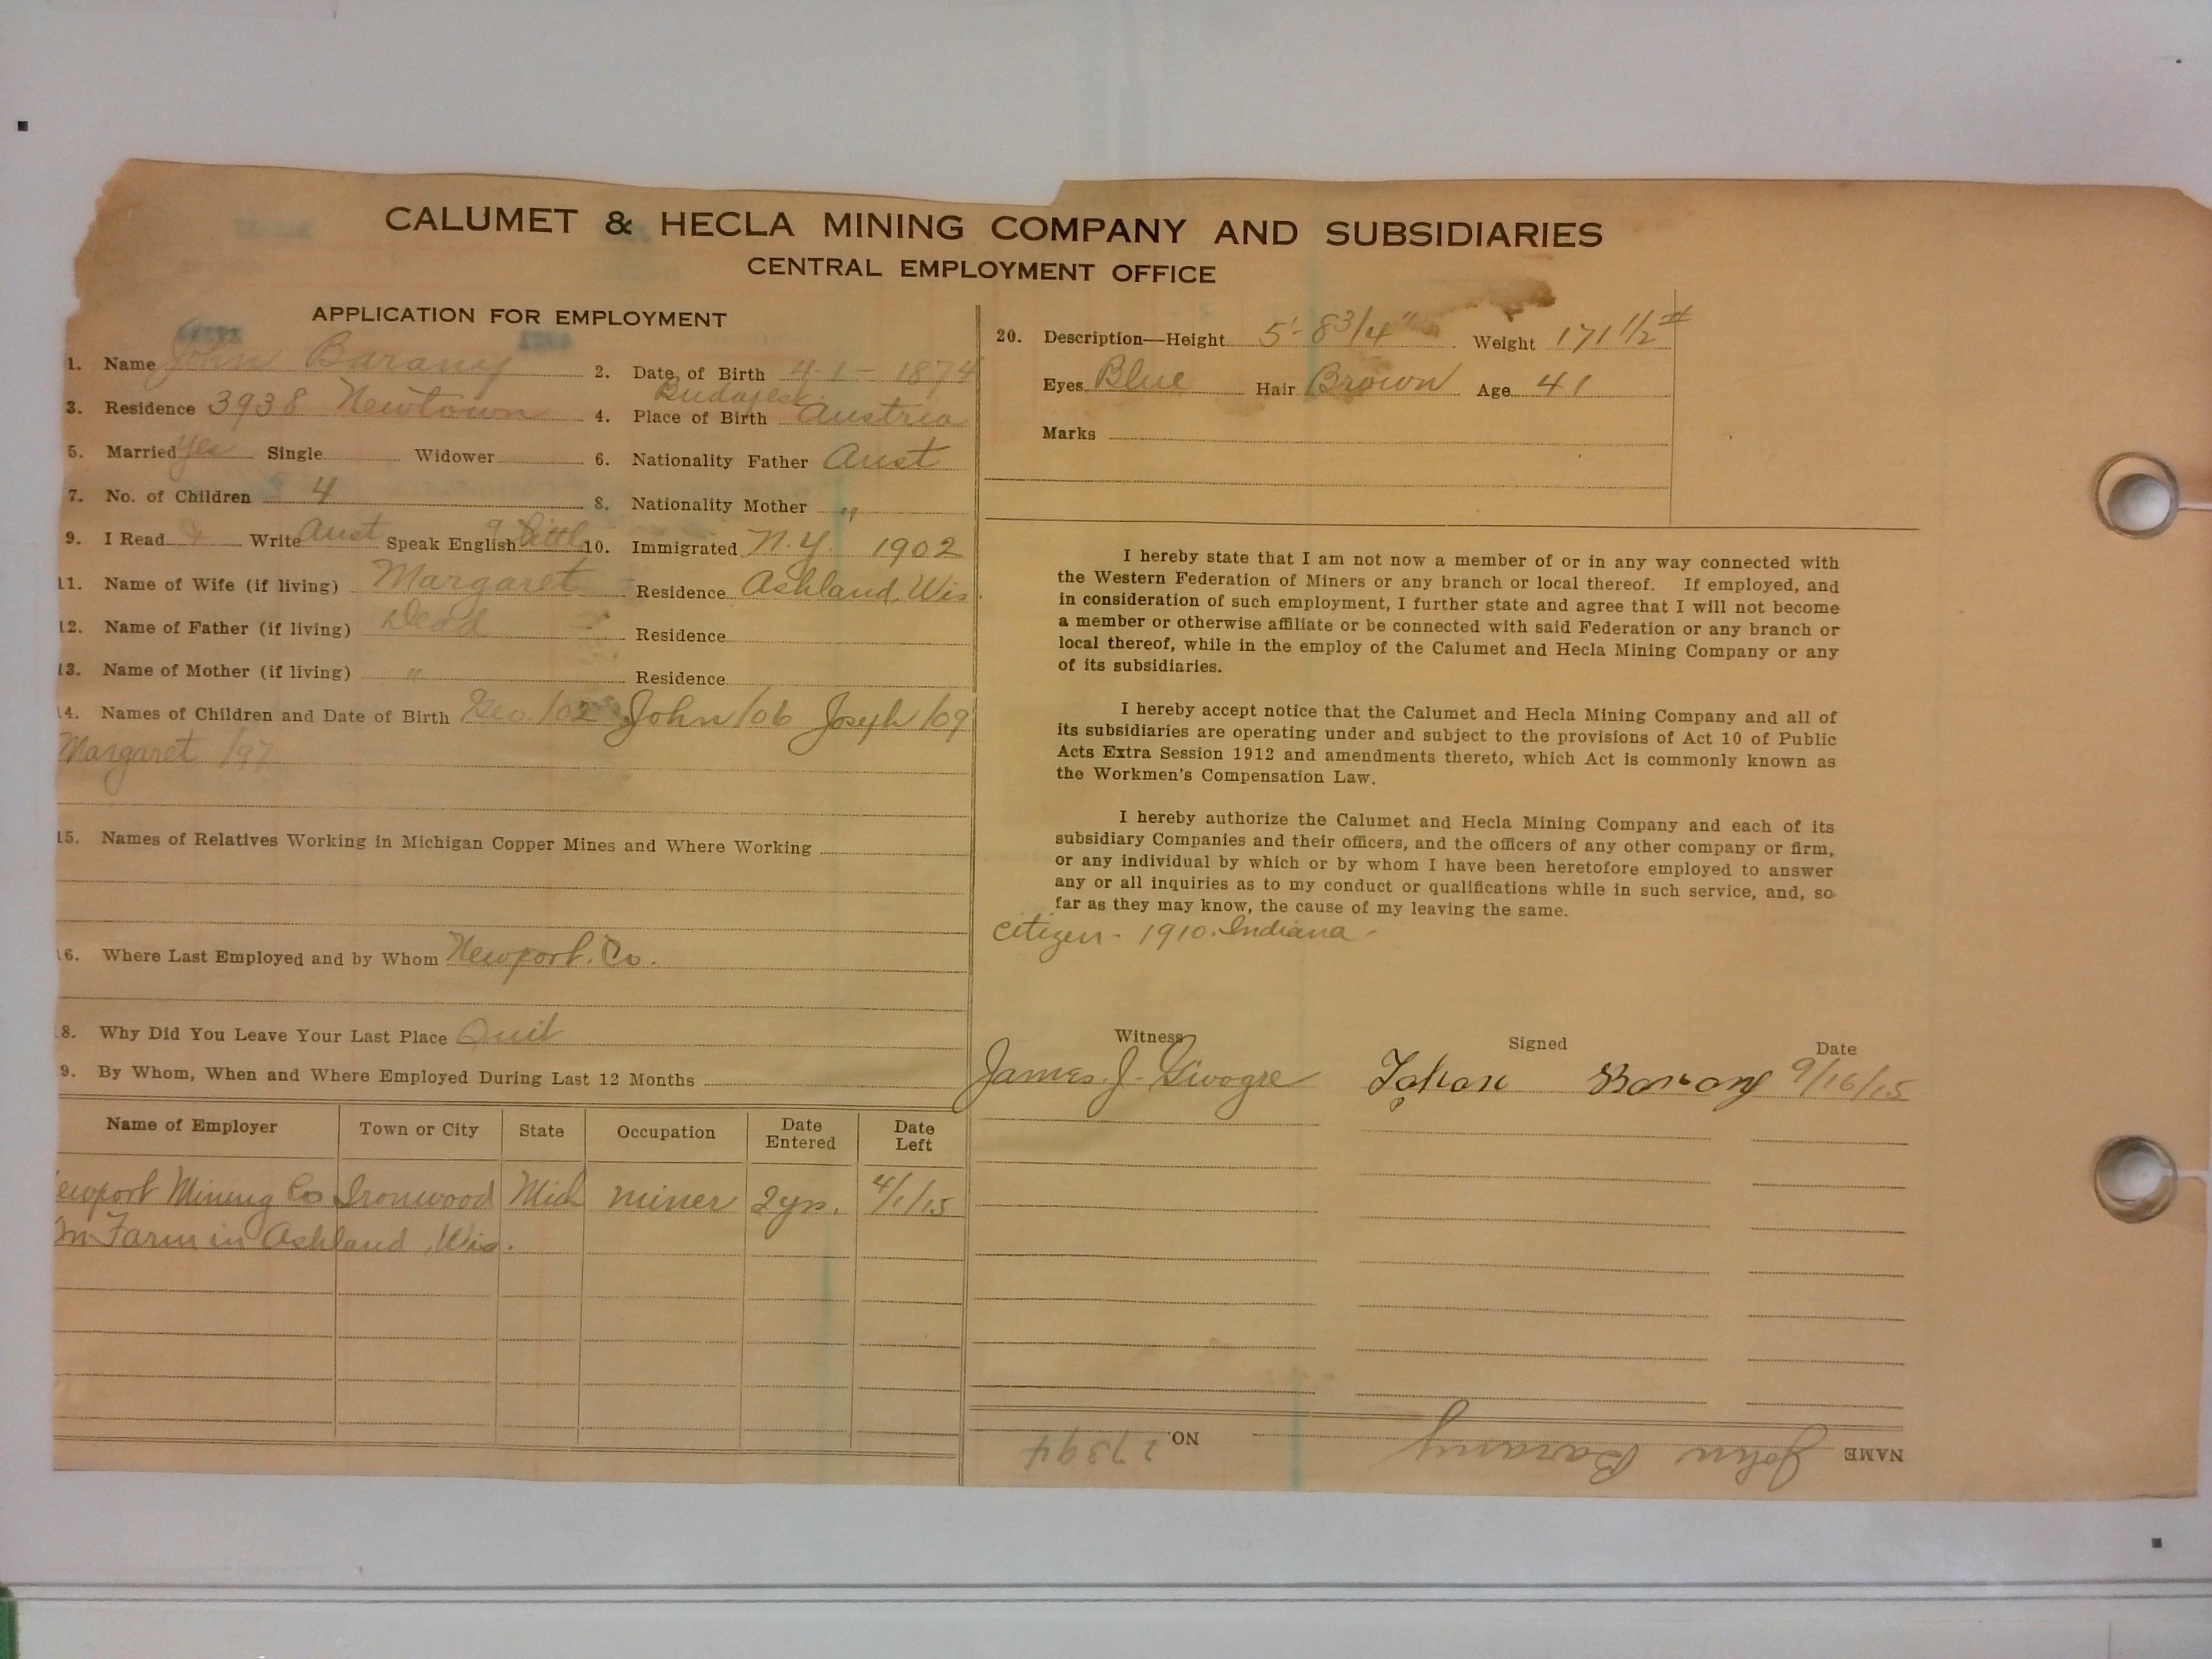 CALUMET & HECLA MINING COMPANY AND SUBSIDIARIES
CENTRAL EMPLOYMENT OFFICE
APPLICATION FOR EMPLOYMENT
1. Name John Barany 2. Date of Birth 4-1-1874
3. Residence 3938 Newtown 4. Place of Birth Budapest Austria
5. Married yes Single Widower 6. Nationality Father Aust
7. No. of Children 4 8. Nationality Mother "
9. I Read & Write Aust Speak English a little 10. Immigrated N.Y. 1902
11. Name of Wife (if living) Margaret Residence Ashland, Wis
12. Name of Father (if living) Dead Residence
13. Name of Mother (if living) " Residence
14. Names of Children and Date of Birth Geo /02 John /06 Joseph /09
Margaret /97
15. Names of Relatives Working in Michigan Copper Mines and Where Working
16. Where Last Employed and by Whom Newport. Co.
8. Why Did You Leave Your Last Place Quit
9. By Whom, When and Where Employed During Last 12 Months
Name of Employer Town or City State Occupation Date Entered Date Left
ewport Mining Co Ironwood Mich miner 2 yrs. 4/1/15
On Farm in Ashland, Wis.
20. Description—Height 5'- 8 3/4" Weight 171 1/2 #
Eyes Blue Hair Brown Age 41
Marks
I hereby state that I am not now a member of or in any way connected with
the Western Federation of Miners or any branch or local thereof. If employed, and
in consideration of such employment, I further state and agree that I will not become
a member or otherwise affiliate or be connected with said Federation or any branch or
local thereof, while in the employ of the Calumet and Hecla Mining Company or any
of its subsidiaries.
I hereby accept notice that the Calumet and Hecla Mining Company and all of
its subsidiaries are operating under and subject to the provisions of Act 10 of Public
Acts Extra Session 1912 and amendments thereto, which Act is commonly known as
the Workmen's Compensation Law.
I hereby authorize the Calumet and Hecla Mining Company and each of its
subsidiary Companies and their officers, and the officers of any other company or firm,
or any individual by which or by whom I have been heretofore employed to answer
any or all inquiries as to my conduct or qualifications while in such service, and, so
far as they may know, the cause of my leaving the same.
Citizen - 1910. Indiana.
Witness Signed Date
James J. Barany 9/16/15
NAME John Barany NO. 27394